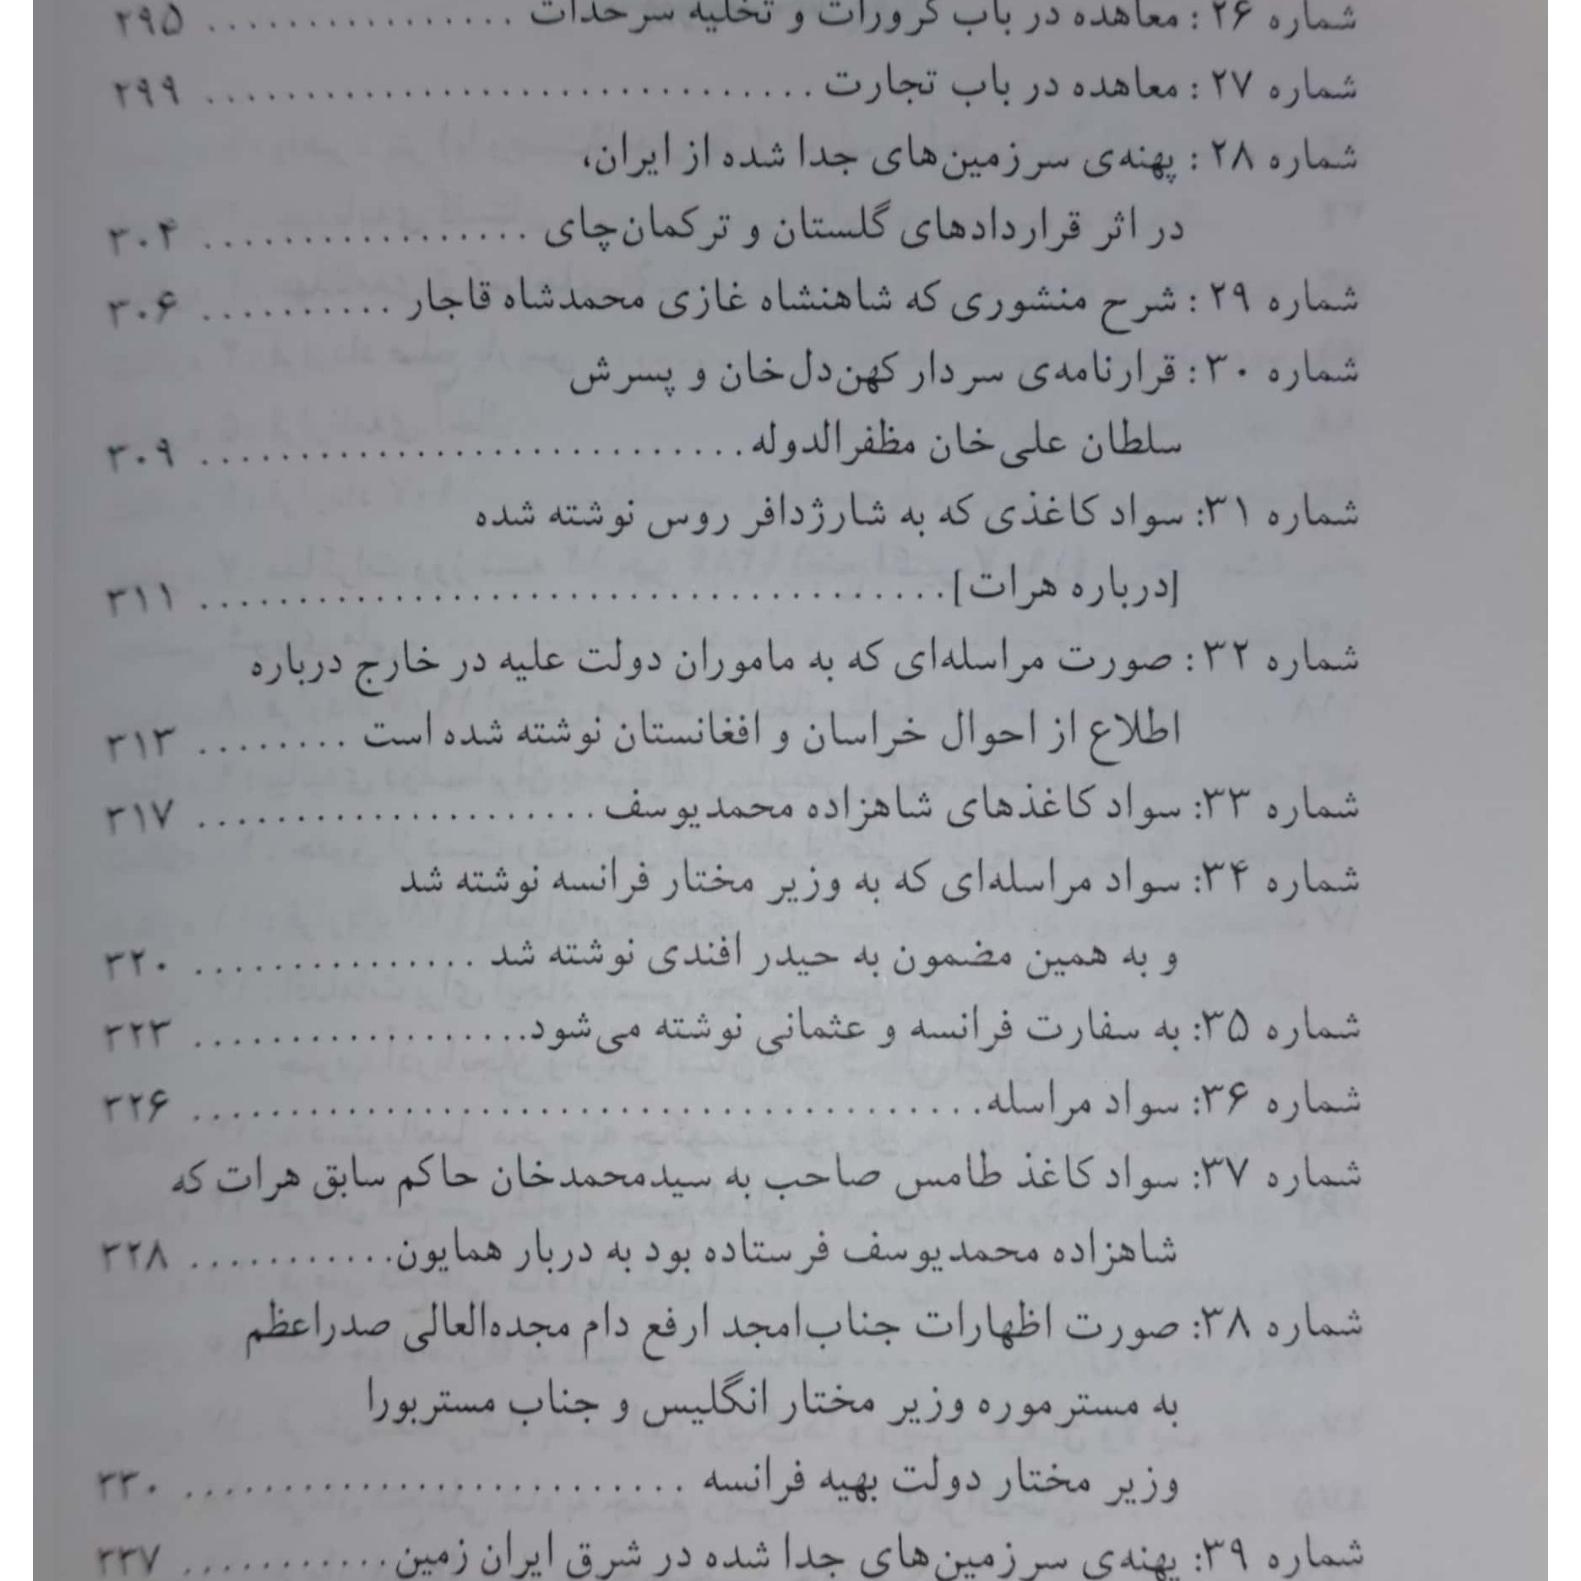 شماره ۲۶ : معاهده در باب کرورات و تخلیه سرحدات ................ ۲۹۵
شماره ۲۷ : معاهده در باب تجارت ............................... ۲۹۹
شماره ۲۸ : پهنه‌ی سرزمین‌های جدا شده از ایران،
در اثر قراردادهای گلستان و ترکمان‌چای ................. ۳۰۴
شماره ۲۹ : شرح منشوری که شاهنشاه غازی محمدشاه قاجار .......... ۳۰۶
شماره ۳۰ : قرارنامه‌ی سردار کهن‌دل‌خان و پسرش
سلطان علی‌خان مظفرالدوله ............................ ۳۰۹
شماره ۳۱: سواد کاغذی که به شارژدافر روس نوشته شده
[درباره هرات] ...................................... ۳۱۱
شماره ۳۲ : صورت مراسله‌ای که به ماموران دولت علیه در خارج درباره
اطلاع از احوال خراسان و افغانستان نوشته شده است ........ ۳۱۳
شماره ۳۳: سواد کاغذهای شاهزاده محمدیوسف ..................... ۳۱۷
شماره ۳۴: سواد مراسله‌ای که به وزیر مختار فرانسه نوشته شد
و به همین مضمون به حیدر افندی نوشته شد ............... ۳۲۰
شماره ۳۵: به سفارت فرانسه و عثمانی نوشته می‌شود .................. ۳۲۳
شماره ۳۶: سواد مراسله ........................................ ۳۲۶
شماره ۳۷: سواد کاغذ طامس صاحب به سیدمحمدخان حاکم سابق هرات که
شاهزاده محمدیوسف فرستاده بود به دربار همایون ........... ۳۲۸
شماره ۳۸: صورت اظهارات جناب‌امجد ارفع دام مجده‌العالی صدراعظم
به مستر موره وزیر مختار انگلیس و جناب مستربورا
وزیر مختار دولت بهیه فرانسه ......................... ۳۳۰
شماره ۳۹: پهنه‌ی سرزمین‌های جدا شده در شرق ایران زمین ........... ۳۳۷